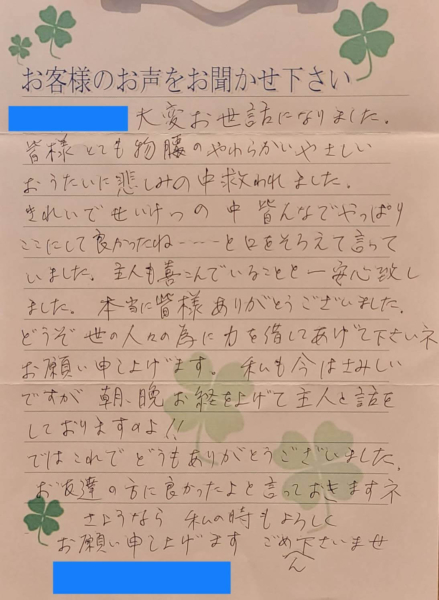 お客様のお声をお聞かせ下さい
大変お世話になりました。
皆様とても物腰のやわらかいやさしい
おうたいに悲しみの中救われました。
きれいでせいけつの中皆んなでやっぱり
ここにして良かったね……と口をそろえて言って
いました。主人も喜こんでいることと一安心致し
ました。本当に皆様ありがとうございました。
どうぞ世の人々の為に力を貸してあげて下さいネ
お願い申し上げます。私も今はさみしい
ですが朝、晩お経を上げて主人と話を
しておりますのよ!!
ではこれでどうもありがとうございました。
お友達の方に良かったよと言っておきますネ
さようなら 私の時もよろしく
お願い申し上げます ごめ下さいませ
ん